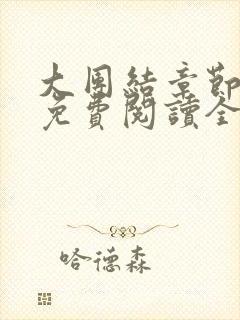 大團結章節
免費閱讀全
哈德森